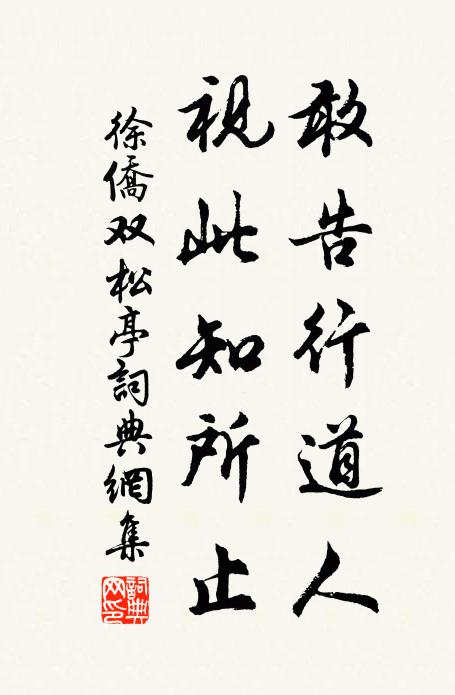 敢告行道人
視此知所止
徐僑双松亭詞典網集
詞典網印